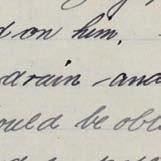 d on him.
drain - and
ould be obl